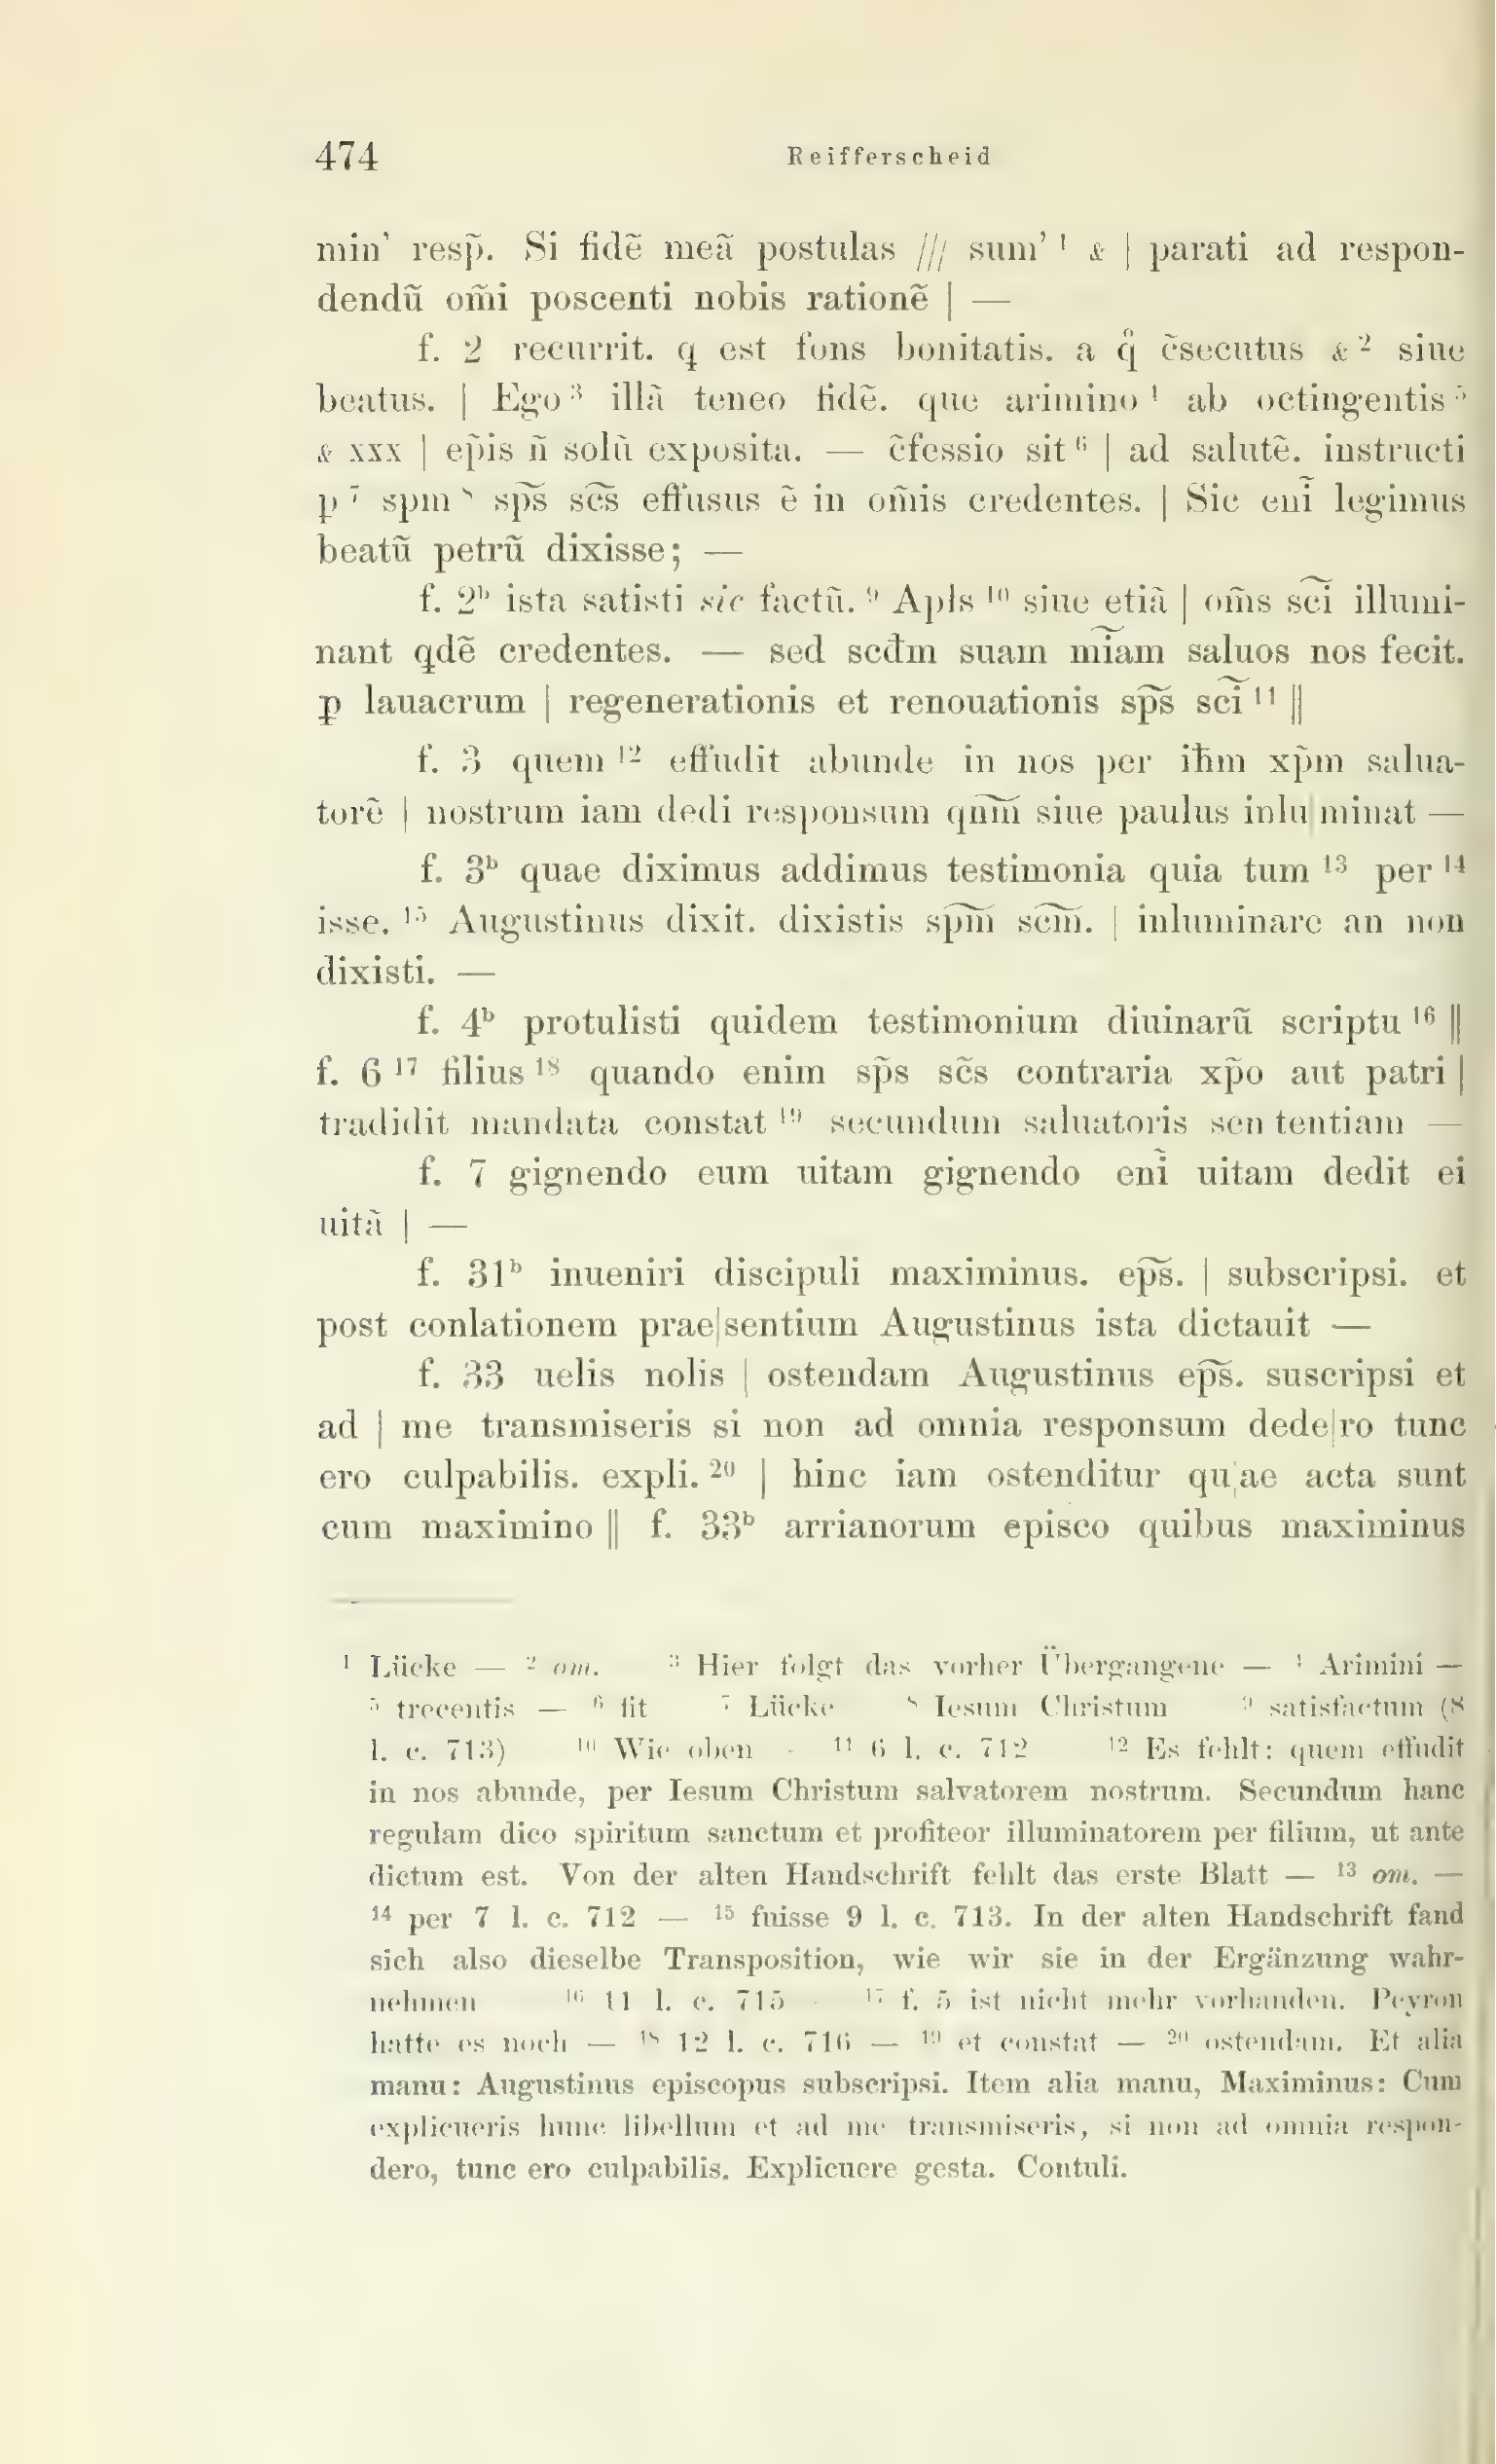 474 Reifferscheid
min’ resp̃. Si fidẽ meã postulas /// sum’ ¹ & | parati ad respon-
dendũ om̃i poscenti nobis rationẽ | —
f. 2 recurrit. q est fons bonitatis. a q̊ c̃secutus & ² siue
beatus. | Ego ³ illã teneo fidẽ. que arimino ⁴ ab octingentis ⁵
& xxx | ep̃is ñ solũ exposita. — c̃fessio sit ⁶ | ad salutẽ. instructi
p ⁷ spm ⁸ sp̃s sc̃s effusus ẽ in om̃is credentes. | Sic enĩ legimus
beatũ petrũ dixisse; —
f. 2ᵇ ista satisti sic factũ. ⁹ Apłs ¹⁰ siue etiã | om̃s scĩ illumi-
nant qdẽ credentes. — sed scđm suam mĩam saluos nos fecit.
ꝑ lauacrum | regenerationis et renouationis sp̃s scĩ ¹¹ ||
f. 3 quem ¹² effudit abunde in nos per iħm xp̃m salua-
torẽ | nostrum iam dedi responsum qnm̃ siue paulus inlu|minat —
f. 3ᵇ quae diximus addimus testimonia quia tum ¹³ per ¹⁴
isse. ¹⁵ Augustinus dixit. dixistis spm̃ scm̃. | inluminare an non
dixisti. —
f. 4ᵇ protulisti quidem testimonium diuinarũ scriptu ¹⁶ ||
f. 6 ¹⁷ filius ¹⁸ quando enim sp̃s sc̃s contraria xp̃o aut patri |
tradidit mandata constat ¹⁹ secundum saluatoris sen tentiam —
f. 7 gignendo eum uitam gignendo enĩ uitam dedit ei
uitã | —
f. 31ᵇ inueniri discipuli maximinus. ep̃s. | subscripsi. et
post conlationem prae|sentium Augustinus ista dictauit —
f. 33 uelis nolis | ostendam Augustinus ep̃s. suscripsi et
ad | me transmiseris si non ad omnia responsum dede|ro tunc
ero culpabilis. expli. ²⁰ | hinc iam ostenditur qu|ae acta sunt
cum maximino || f. 33ᵇ arrianorum episco quibus maximinus
¹ Lücke — ² om. ³ Hier folgt das vorher Übergangene — ⁴ Arimini —
⁵ trecentis — ⁶ fit ⁷ Lücke ⁸ Iesum Christum ⁹ satisfactum (8
l. c. 713) ¹⁰ Wie oben - ¹¹ 6 l. c. 712 ¹² Es fehlt: quem effudit
in nos abunde, per Iesum Christum salvatorem nostrum. Secundum hanc
regulam dico spiritum sanctum et profiteor illuminatorem per filium, ut ante
dictum est. Von der alten Handschrift fehlt das erste Blatt — ¹³ om. —
¹⁴ per 7 l. c. 712 — ¹⁵ fuisse 9 l. c. 713. In der alten Handschrift fand
sich also dieselbe Transposition, wie wir sie in der Ergänzung wahr-
nehmen ¹⁶ 11 l. c. 715 - ¹⁷ f. 5 ist nicht mehr vorhanden. Peyron
hatte es noch — ¹⁸ 12 l. c. 716 — ¹⁹ et constat — ²⁰ ostendam. Et alia
manu: Augustinus episcopus subscripsi. Item alia manu, Maximinus: Cum
explicueris hunc libellum et ad me transmiseris, si non ad omnia respon-
dero, tunc ero culpabilis. Explicuere gesta. Contuli.